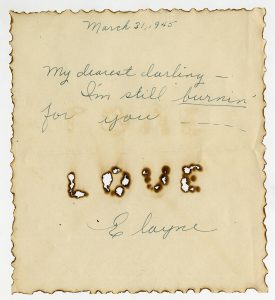 March 31, 1945
My dearest darling —
I'm still burnin'
for you ————
LOVE
Elayne